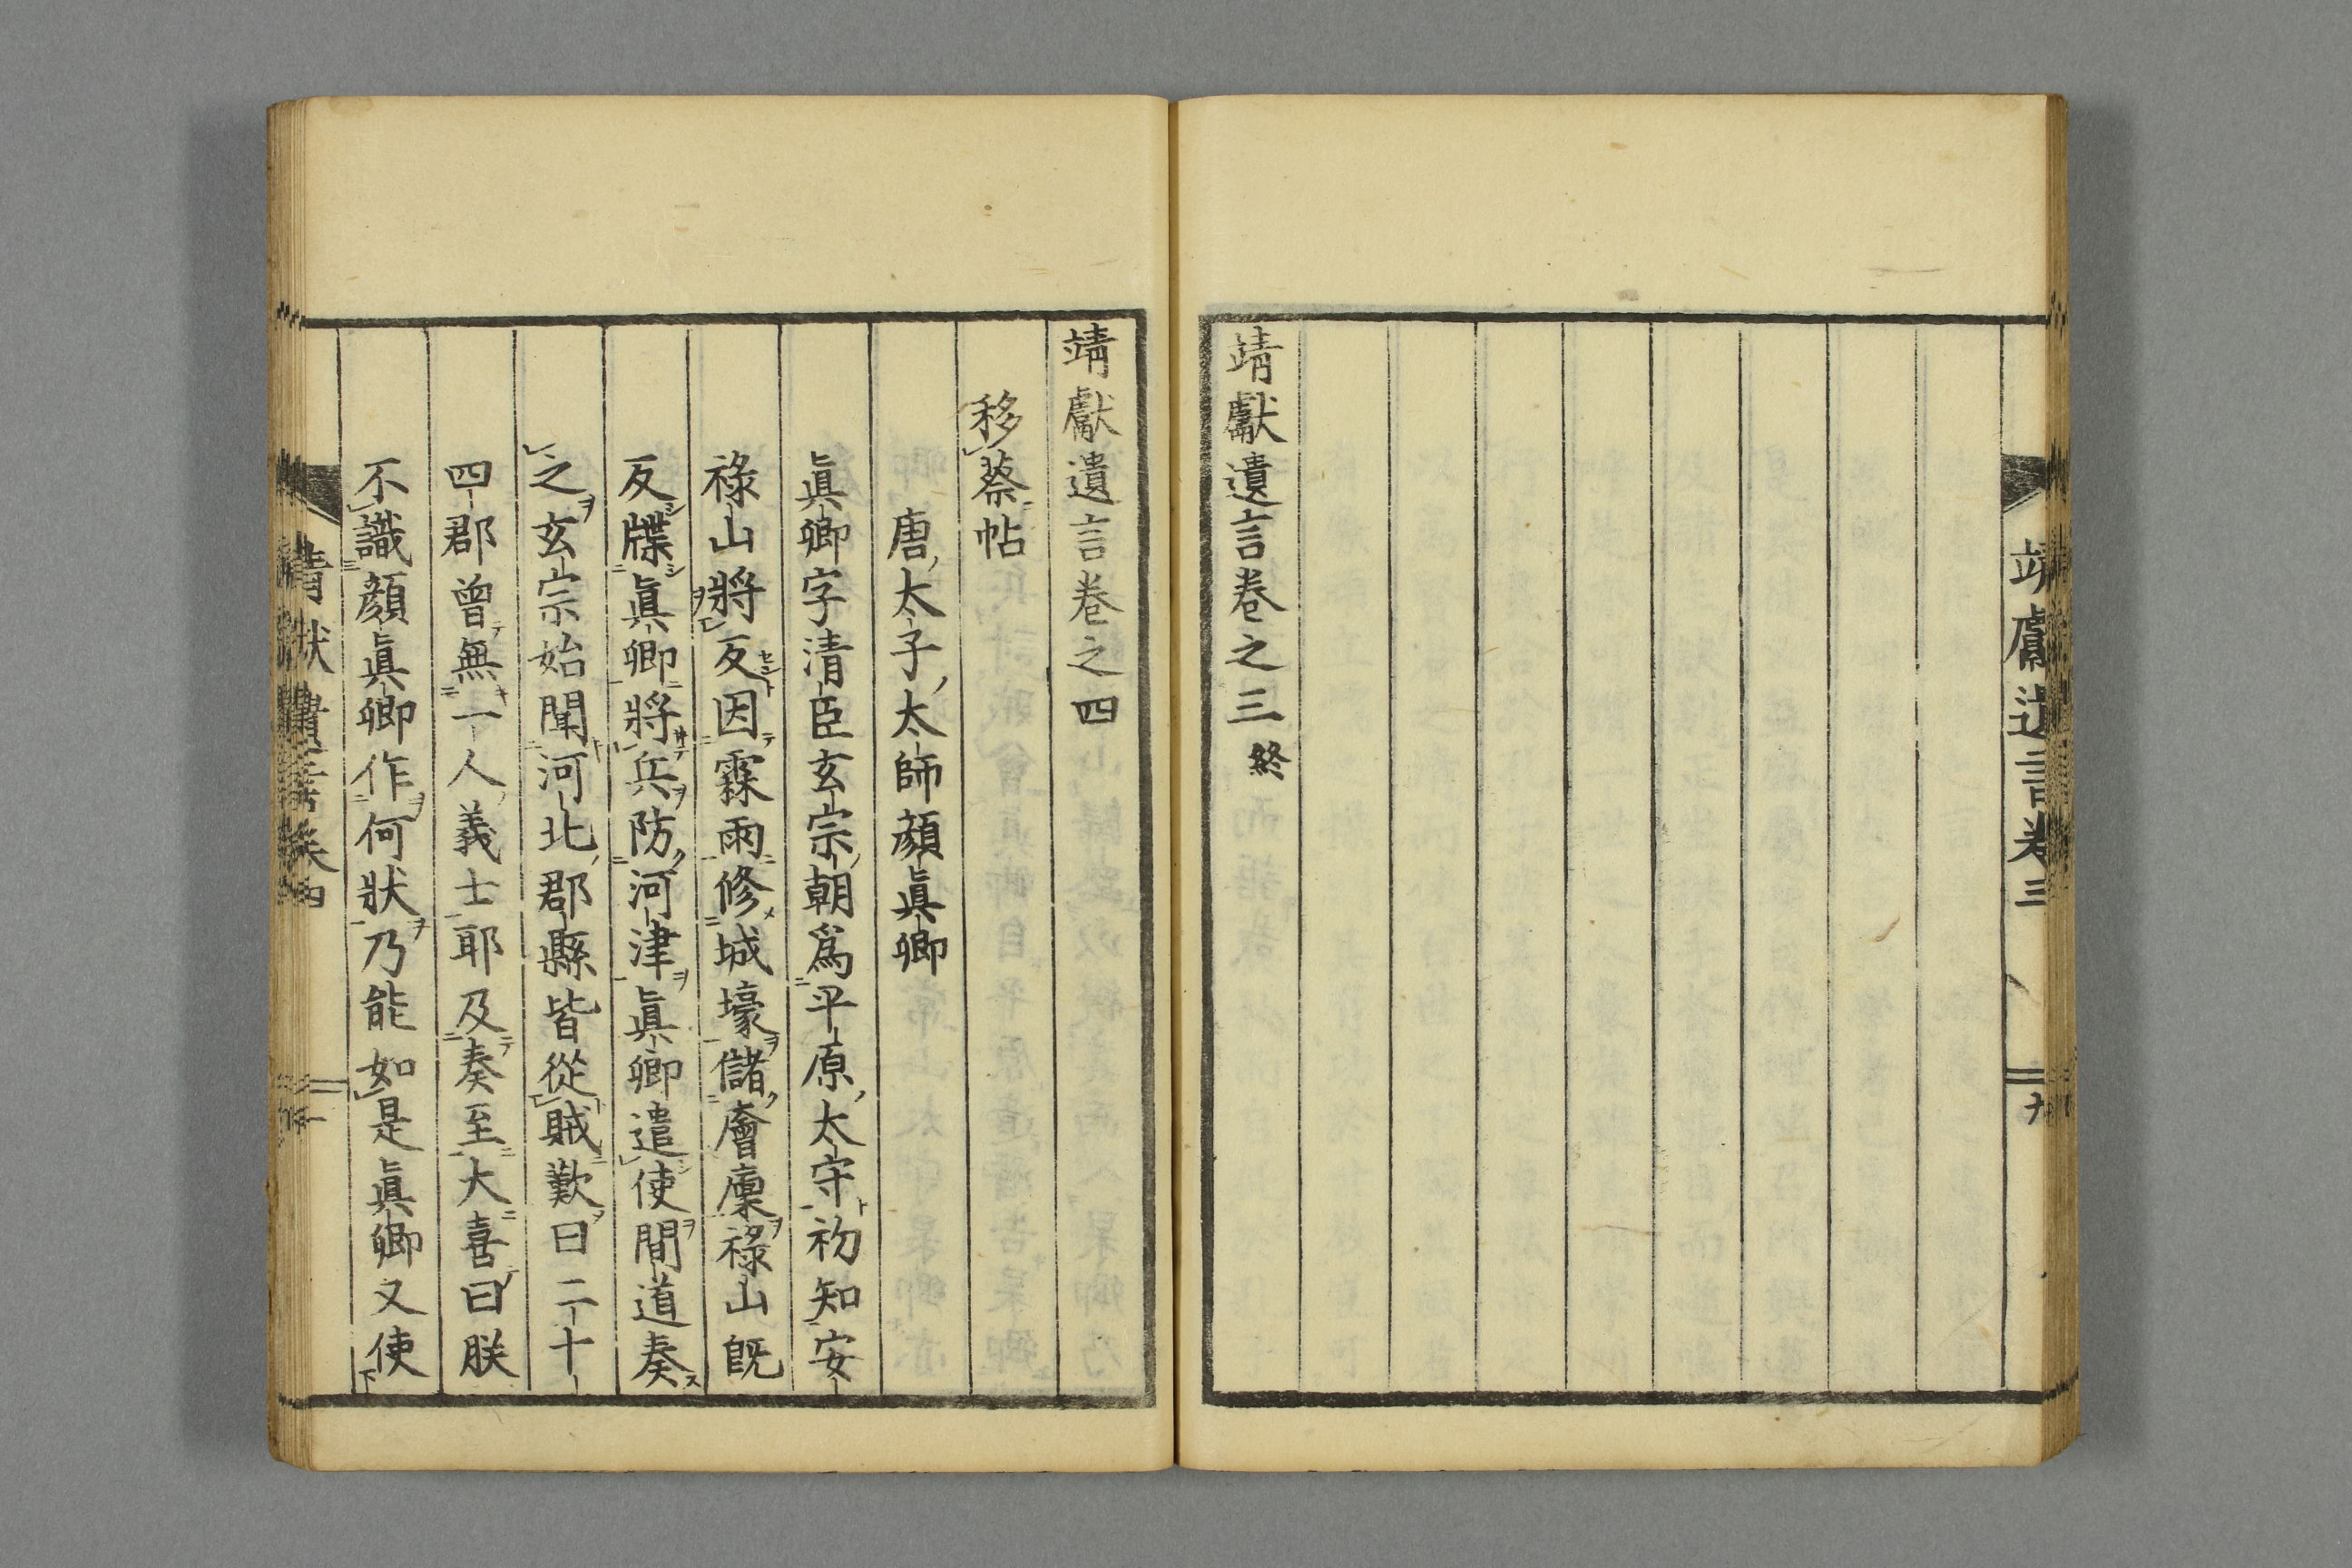 靖獻遺言卷三
九
靖獻遺言卷之三終
靖獻遺言卷之四
移蔡帖
唐太子太師顏眞卿
眞卿字清臣玄宗朝爲平原太守初知安
祿山將反因霖雨修城壕儲廥廩祿山旣
反牒眞卿將兵防河津眞卿遣使間道奏
之玄宗始聞河北郡縣皆從賊歎曰二十
四郡曾無一人義士耶及奏至大喜曰朕
不識顏眞卿作何狀乃能如是眞卿又使